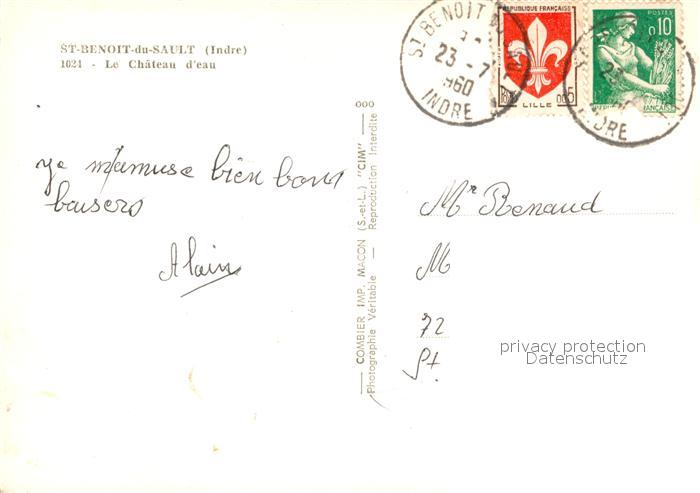 ST-BENOIT-du-SAULT (Indre)
1024 - Le Château d'eau
ST BENOIT DU
23 - 7
1960
INDRE
RÉPUBLIQUE FRANÇAISE
LILLE
0,05
POSTES
0,10
FRANÇAISE
23
INDRE
ye m'amuse bien bons
baisers
Alain
COMBIER IMP. MACON (S.-et-L.) "CIM"
Photographie Véritable — Reproduction Interdite
Mr Renaud
M
72
St.
privacy protection
Datenschutz